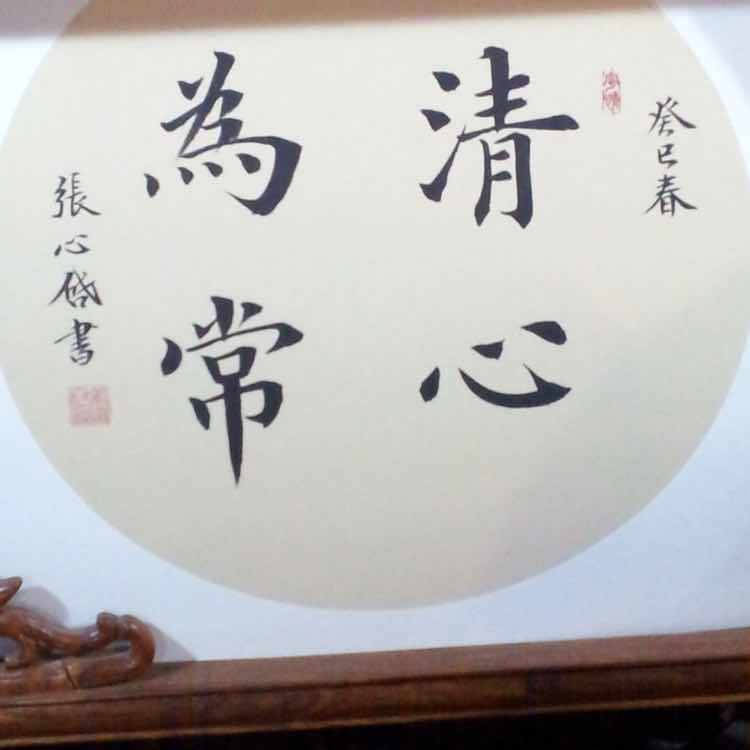 癸巳春
清心
為常
張心啓書